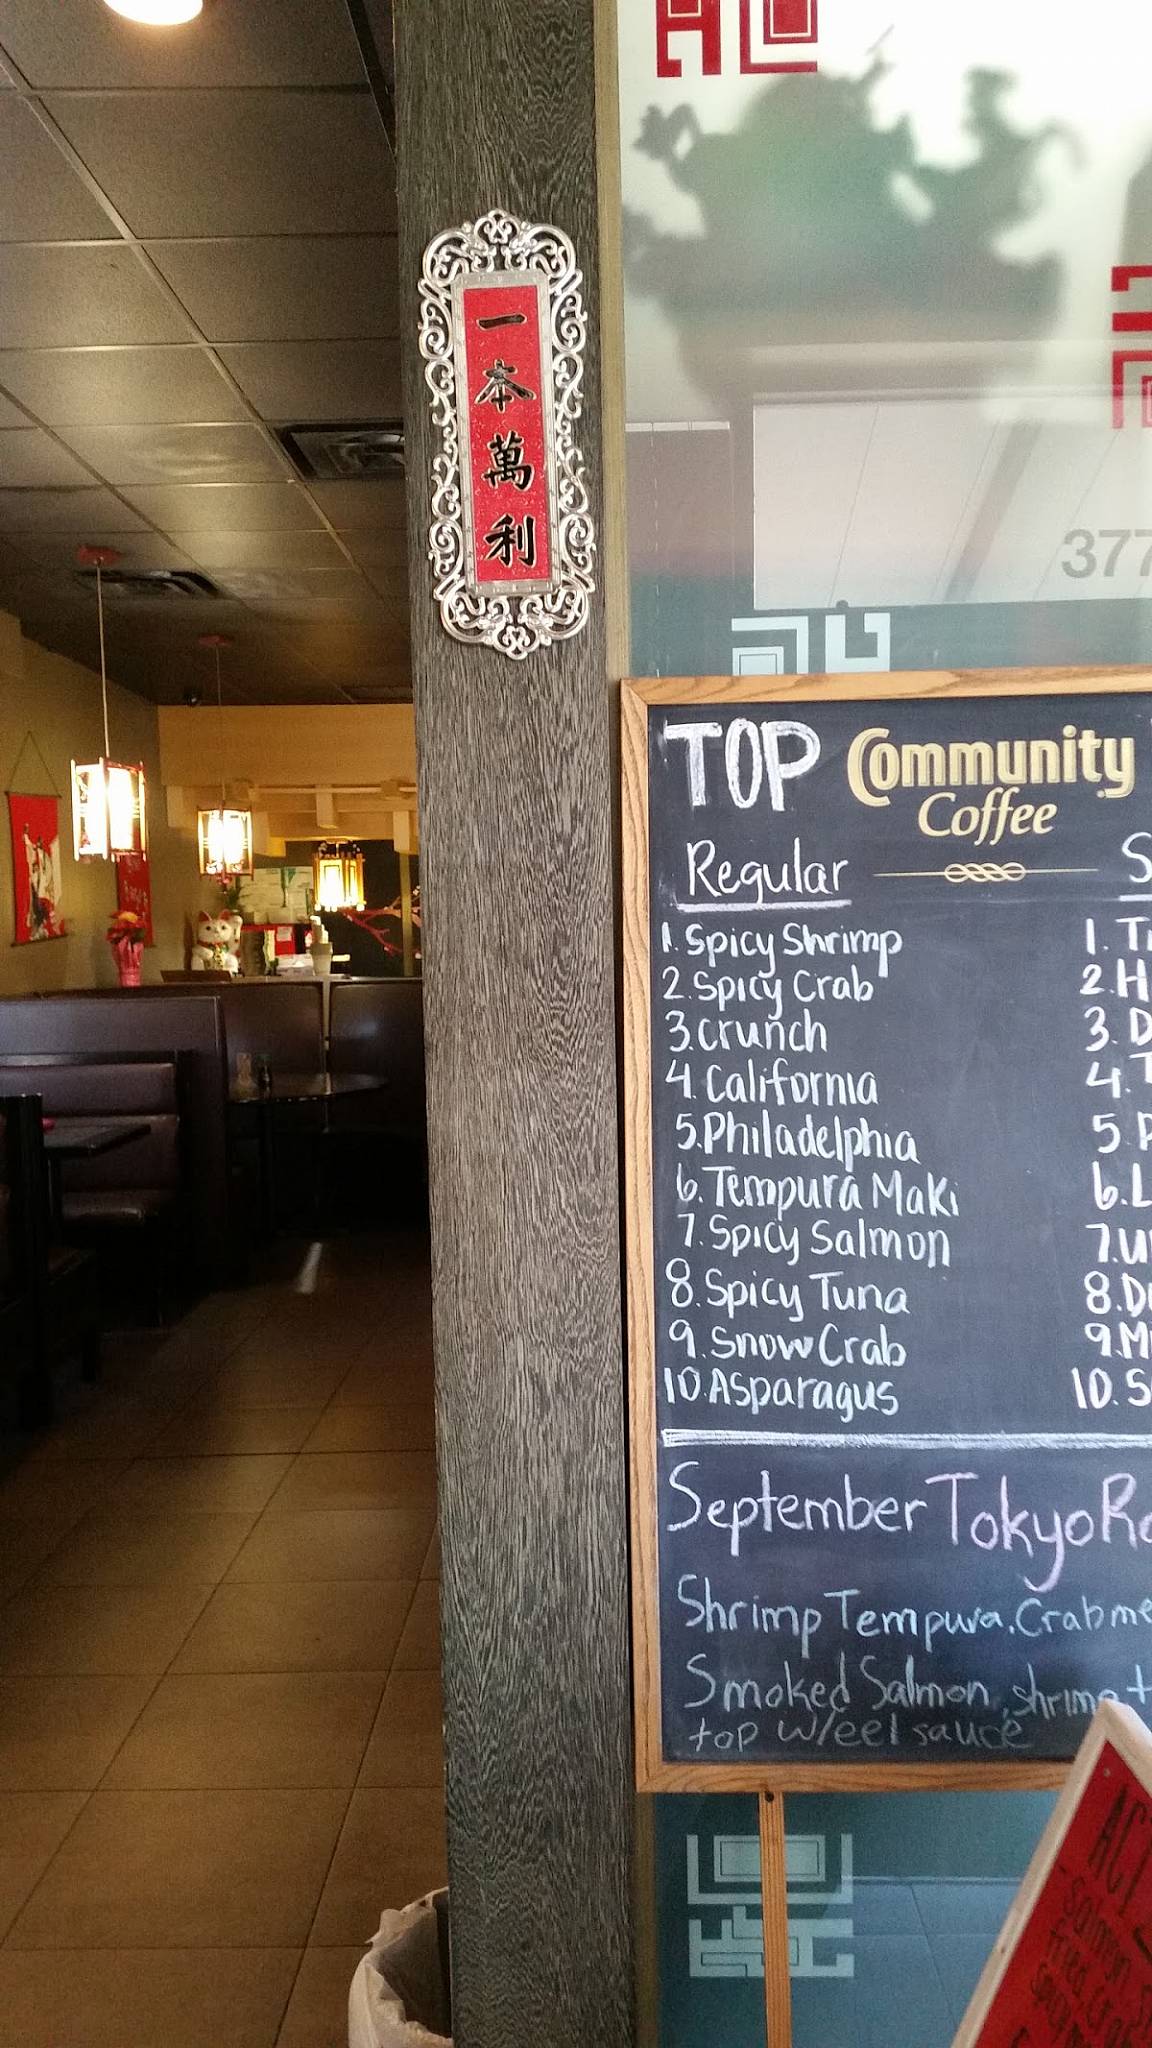 一本萬利
377
TOP
Community
Coffee
Regular
1. Spicy Shrimp
2. Spicy Crab
3. Crunch
4. California
5. Philadelphia
6. Tempura Maki
7. Spicy Salmon
8. Spicy Tuna
9. Snow Crab
10. Asparagus
S
1. T
2. H
3. D
4. T
5. P
6. L
7. U
8. D
9. M
10. S
September Tokyo Ro
Shrimp Tempura, Crab me
Smoked Salmon, shrimp t
top w/eel sauce
Salmon
fried